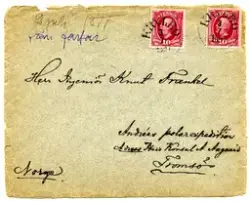 April 1897
från farfar
10 10
Herr Ingeniör Knut Frænkel
Andrées polarexpedition
Herr Konsul A Aagaard
Tromsö
Norge